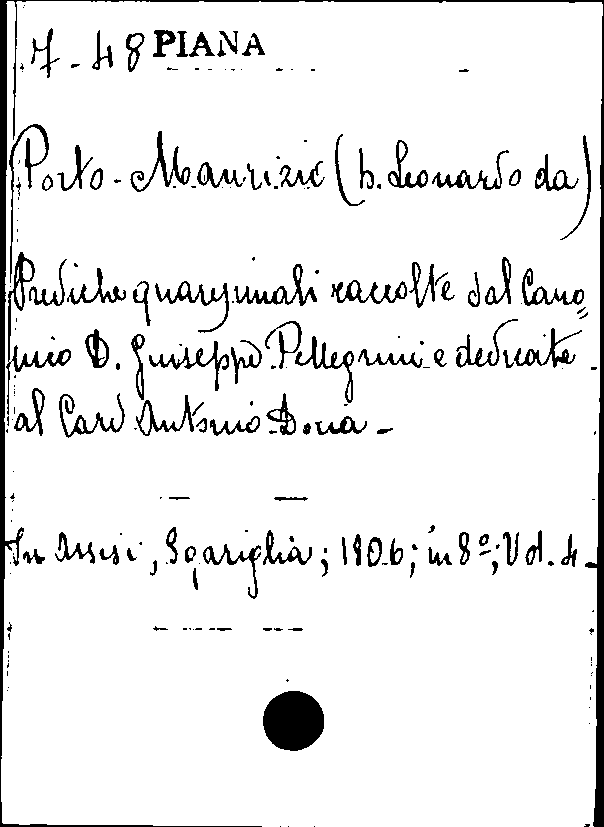 7-48 PIANA
Porto-Maurizio (b. Leonardo da)
Prediche quaresimali raccolte dal Cano=
nico D. Giuseppe Pellegrini e dedicate
al Card Antonio Doria -
In Assisi, Sgariglia; 1806; in 8º; Vol. 4-